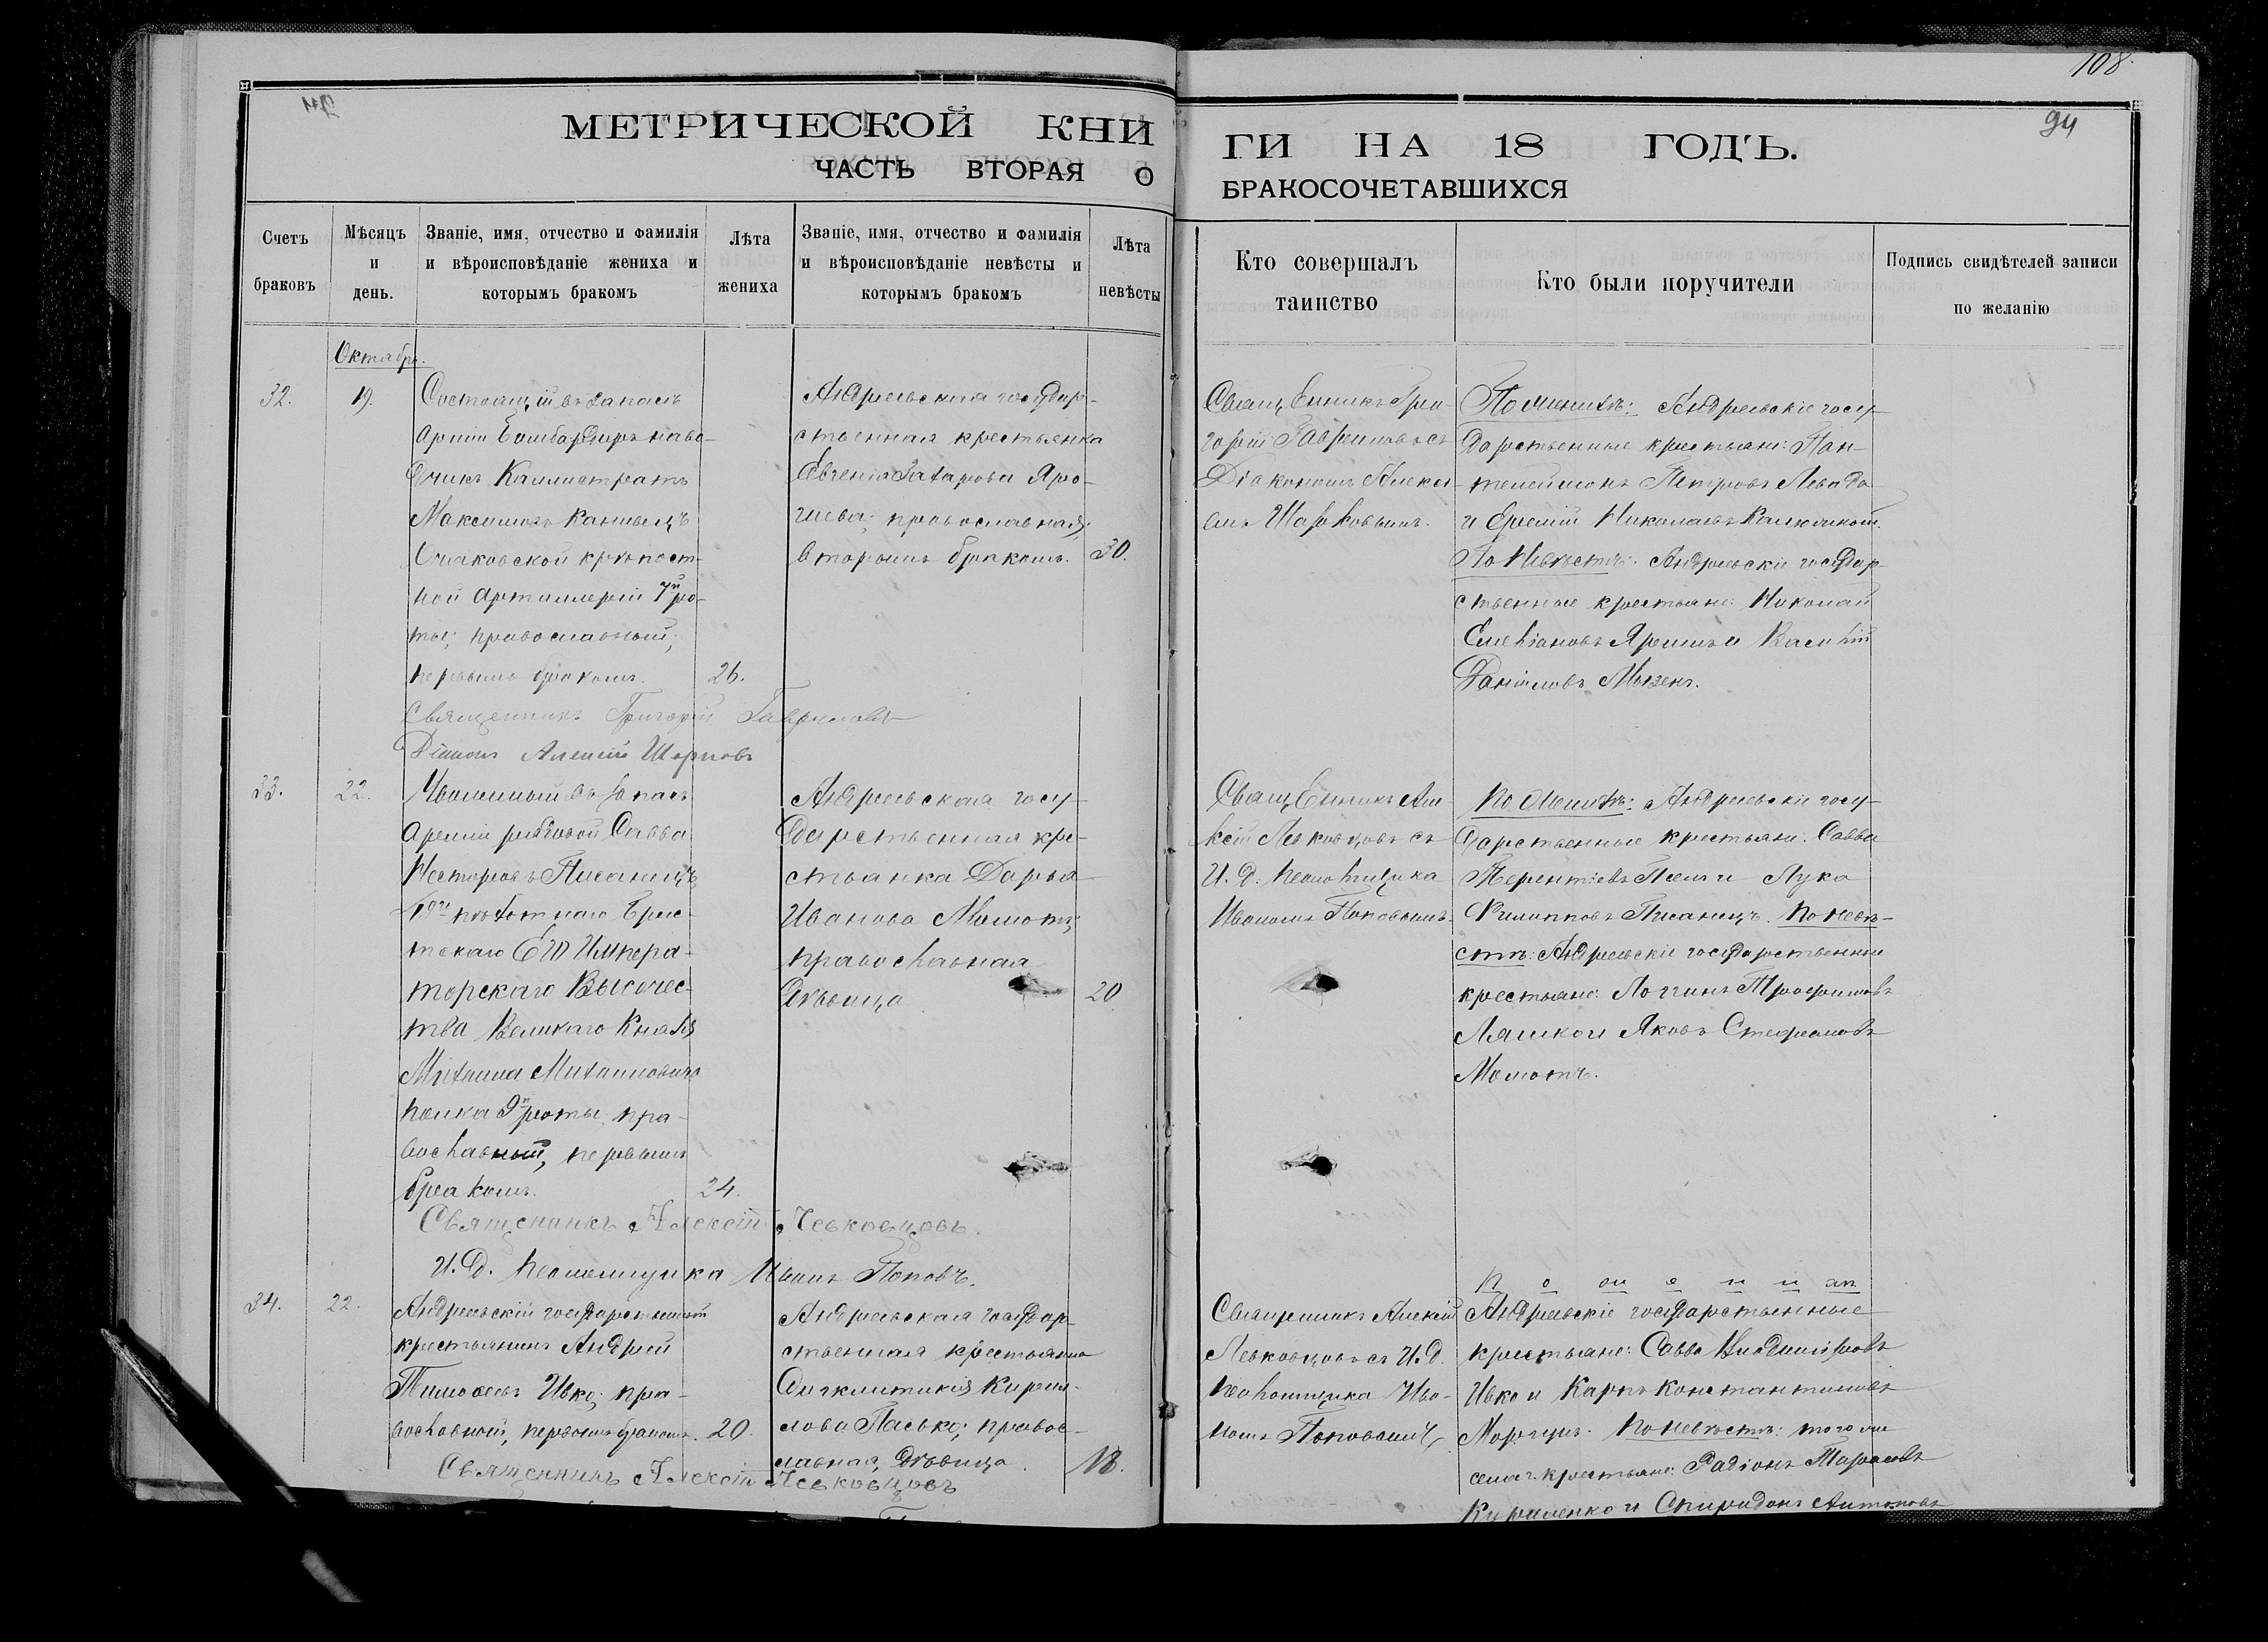 108.
94
МЕТРИЧЕСКОЙ КНИ
ГИ НА 18 ГОДЪ.
ЧАСТЬ ВТОРАЯ О
БРАКОСОЧЕТАВШИХСЯ
Счетъ браковъ
Мѣсяцъ и день.
Званіе, имя, отчество и фамилія и вѣроисповѣданіе жениха и которымъ бракомъ
Лѣта жениха
Званіе, имя, отчество и фамилія и вѣроисповѣданіе невѣсты и которымъ бракомъ
Лѣта невѣсты
Кто совершалъ таинство
Кто были поручители
Подпись свидѣтелей записи по желанію
Октябрь.
32.
19.
Состоящій въ запасѣ
арміи бомбардиръ наво-
дчикъ Каллистратъ
Максимовъ
Очаковской крѣпост-
ной артиллеріи 7й ро-
ты; православный;
первымъ бракомъ.
26.
Андреевская государ-
ственная крестьянка
Евгенія Захарова Яро-
шева; православная;
вторымъ бракомъ.
30.
Священникъ Гри-
горій Гавриловъ съ
Діакономъ Алексі-
емъ
По женихѣ: Андреевскіе госу-
дарственные крестьяне: Пан-
телеймонъ Петровъ Левада
и Еремій Николаевъ
По невѣстѣ: Андреевскіе государ-
ственные крестьяне: Николай
Емеліановъ и Василій
Даніиловъ
Священникъ Григорій Гавриловъ
Діаконъ Алексій
33.
22.
Уволенный въ запасъ
арміи рядовой Савва
Несторовъ Писанецъ
пѣхотнаго Брес-
тскаго Его Импера-
торскаго Высочес-
тва Великаго Князя
Михаила Михаиловича
полка 9й роты, пра-
вославный, первымъ
бракомъ.
24.
Андреевская госу-
дарственная кре-
стьянка Дарья
Иванова Момотъ;
православная
дѣвица
20
Священникъ Але-
ксій Левковцовъ съ
И. д. псаломщика
Иваномъ Поповымъ.
По женихѣ: Андреевскіе госу-
дарственные крестьяне: Савва
Терентіевъ и Лука
Филипповъ Писанецъ. По невѣ-
стѣ: Андреевскіе государственные
крестьяне: Логгинъ Трофимовъ
Ляшко и Яковъ Стефановъ
Момотъ.
Священникъ Алексій Левковцовъ.
И. д. псаломщика Иванъ Поповъ.
34.
22.
Андреевскій государственный
крестьянинъ Андрей
Тимофеевъ Ивко; пра-
вославный, первымъ бракомъ.
20.
Андреевская государ-
ственная крестьянка
Синклитикія Кирил-
лова Пасько; правос-
лавная, дѣвица.
18.
Священникъ Алексій
Левковцовъ съ И. д.
псаломщика Ива-
номъ Поповымъ
По женихѣ
Андреевскіе государственные
крестьяне: Савва Владиміровъ
Ивко и Карпъ Константиновъ
Моргунъ. По невѣстѣ: того же
села г. крестьяне: Радіонъ Тарасовъ
Кириленко и Спиридонъ Антоновъ
Священникъ Алексій Левковцовъ